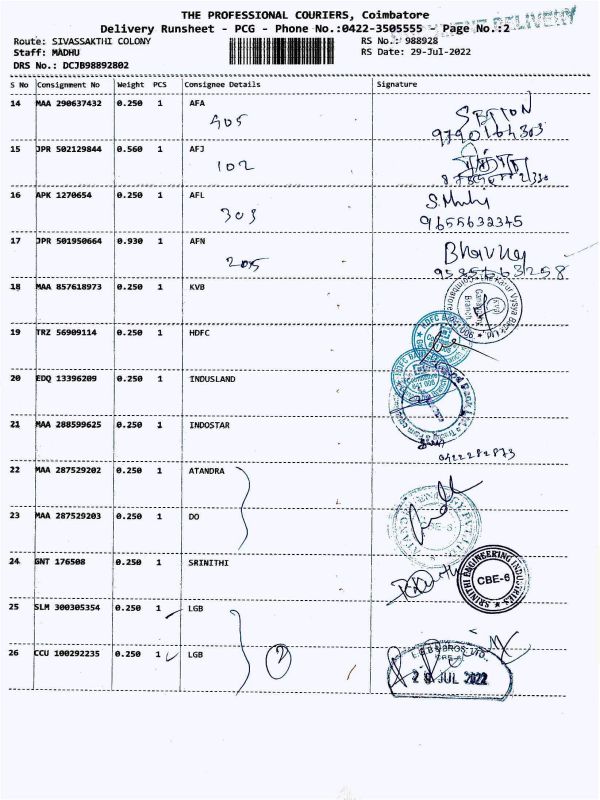 THE PROFESSIONAL COURIERS, Coimbatore
Delivery Runsheet - PCG - Phone No.:0422-3505555 - Page No.:2
DELIVERY
Route: SIVASSAKTHI COLONY
RS No.: 988928
Staff: MADHU
RS Date: 29-Jul-2022
DRS No.: DCJB98892802
S No Consignment No Weight PCS Consignee Details Signature
14 MAA 290637432 0.250 1 AFA
905
9790164303
15 JPR 502129844 0.560 1 AFJ
102
16 APK 1270654 0.250 1 AFL
303
9655632345
17 JPR 501950664 0.930 1 AFN
205
18 MAA 857618973 0.250 1 KVB
19 TRZ 56909114 0.250 1 HDFC
20 EDQ 13396209 0.250 1 INDUSLAND
21 MAA 288599625 0.250 1 INDOSTAR
22 MAA 287529202 0.250 1 ATANDRA
23 MAA 287529203 0.250 1 DO
24 GNT 176508 0.250 1 SRINITHI
SRINITHI ENGINEERING INDUSTRIES
CBE-6
25 SLM 300305354 0.250 1 LGB
26 CCU 100292235 0.250 1 LGB
2
JUL 2022